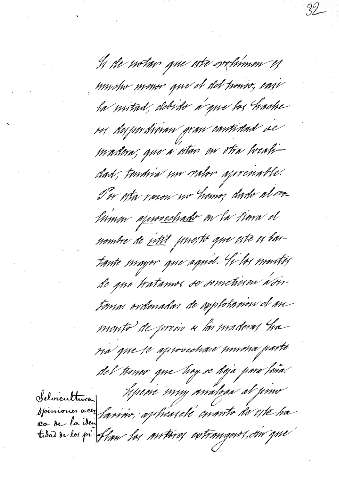 32
Es de notar que este volúmen es
mucho menor que el del tronco, casi
la mitad, debido á que los hache-
ros desperdician gran cantidad de
madera, que á estar en otra locali-
dad, tendria un valor apreciable.
Por esta razon no hemos dado al vo-
lúmen aprovechado en la Sierra el
nombre de útil puesto que este es bas-
tante mayor que aquel. Si los montes
de que tratamos se sometiesen á sis-
temas ordenados de explotacion el au-
mento de precio de las maderas ha-
ria que se aprovechase mucha parte
del tronco que hoy se deja para leña
Especie muy análoga al pino
laricio, aplícasele cuanto de este ha-
blan los autores extrangeros, sin que
Selvicultura
opiniones acer-
ca de la iden-
tidad de los pi-